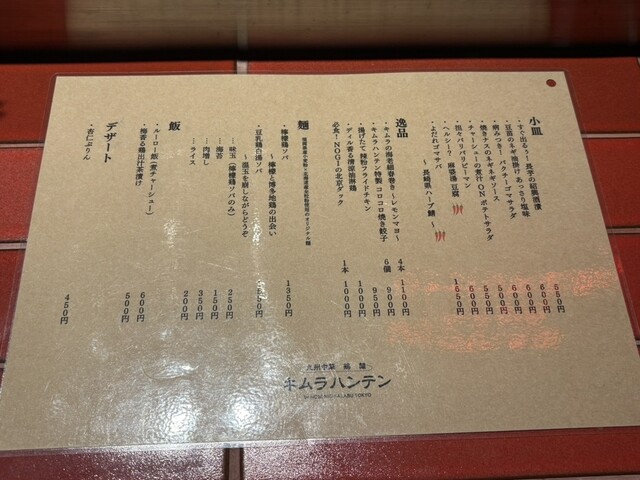 小皿
・すぐ出るぅ!長芋の紹興酒漬 550円
・豆苗のネギ油掛け あっさり塩味 600円
・病みつき!パクチーゴマサラダ 600円
・焼きナスのネギネギソース 550円
・チャーシューの煮汁ONポテトサラダ 550円
・担々パリパリピーマン 600円
・ヘルシー? 麻婆湯豆腐 1650円
・よだれゴマサバ
~長崎県ハーブ鯖~
逸品
・キムラの海老細春巻き~レモンマヨ~ 4本 1100円
・キムラハンテン特製 コロコロ焼き餃子 6個 900円
・揚げたて辣粉フライドチキン 950円
・ディル香る清涼油淋鶏 1000円
必食!NOGIの北京ダック 1本 1000円
麺
・檸檬鶏ソバ 1350円
~檸檬と博多地鶏の出会い
・豆乳鶏白湯ソバ
~温玉を崩しながらどうぞ
…味玉(檸檬鶏ソバのみ) 250円
…海苔 150円
…肉増し 350円
…ライス 200円
飯
・ルーロー飯(煮チャーシュー) 600円
・梅香る鶏出汁茶漬け 500円
デザート
・杏仁ぷりん 450円
九州中華 麺 飯
キムラハンテン